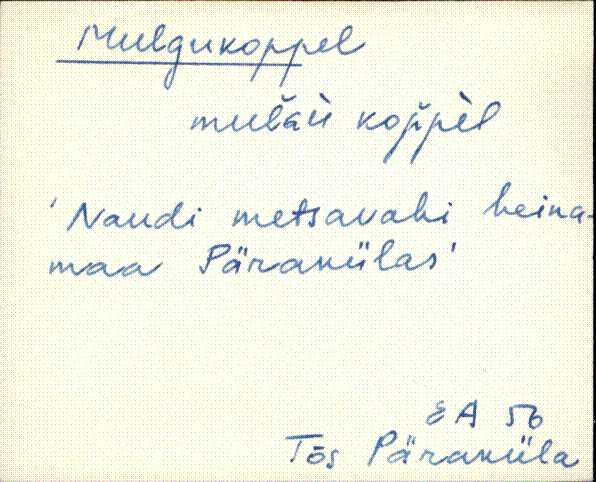 Mulgukoppel
koppel
'Naudi metsavahi heina-
maa Pärakülas'
EA 56
Tõs Päraküla